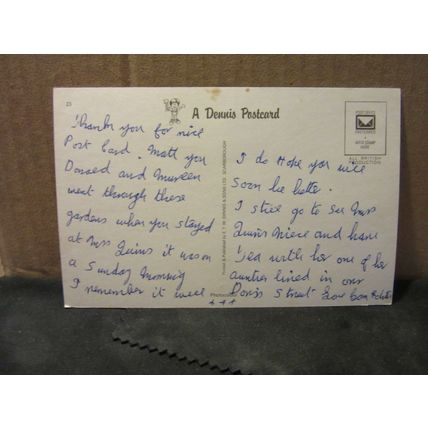 23
A Dennis Postcard
POSTCARD
PREFERRED
AFFIX STAMP
HERE
ALL BRITISH
PRODUCTION
Thank you for nice
Post Card. Matt you
Donald and Maureen
went through these
gardens when you stayed
at Mrs Quins it was on
a Sunday morning
I remember it well
I do Hope you will
soon be better.
I still go to see Mrs
Quins niece and have
Tea with her one of her
aunties lived in our
Doris Street Love from